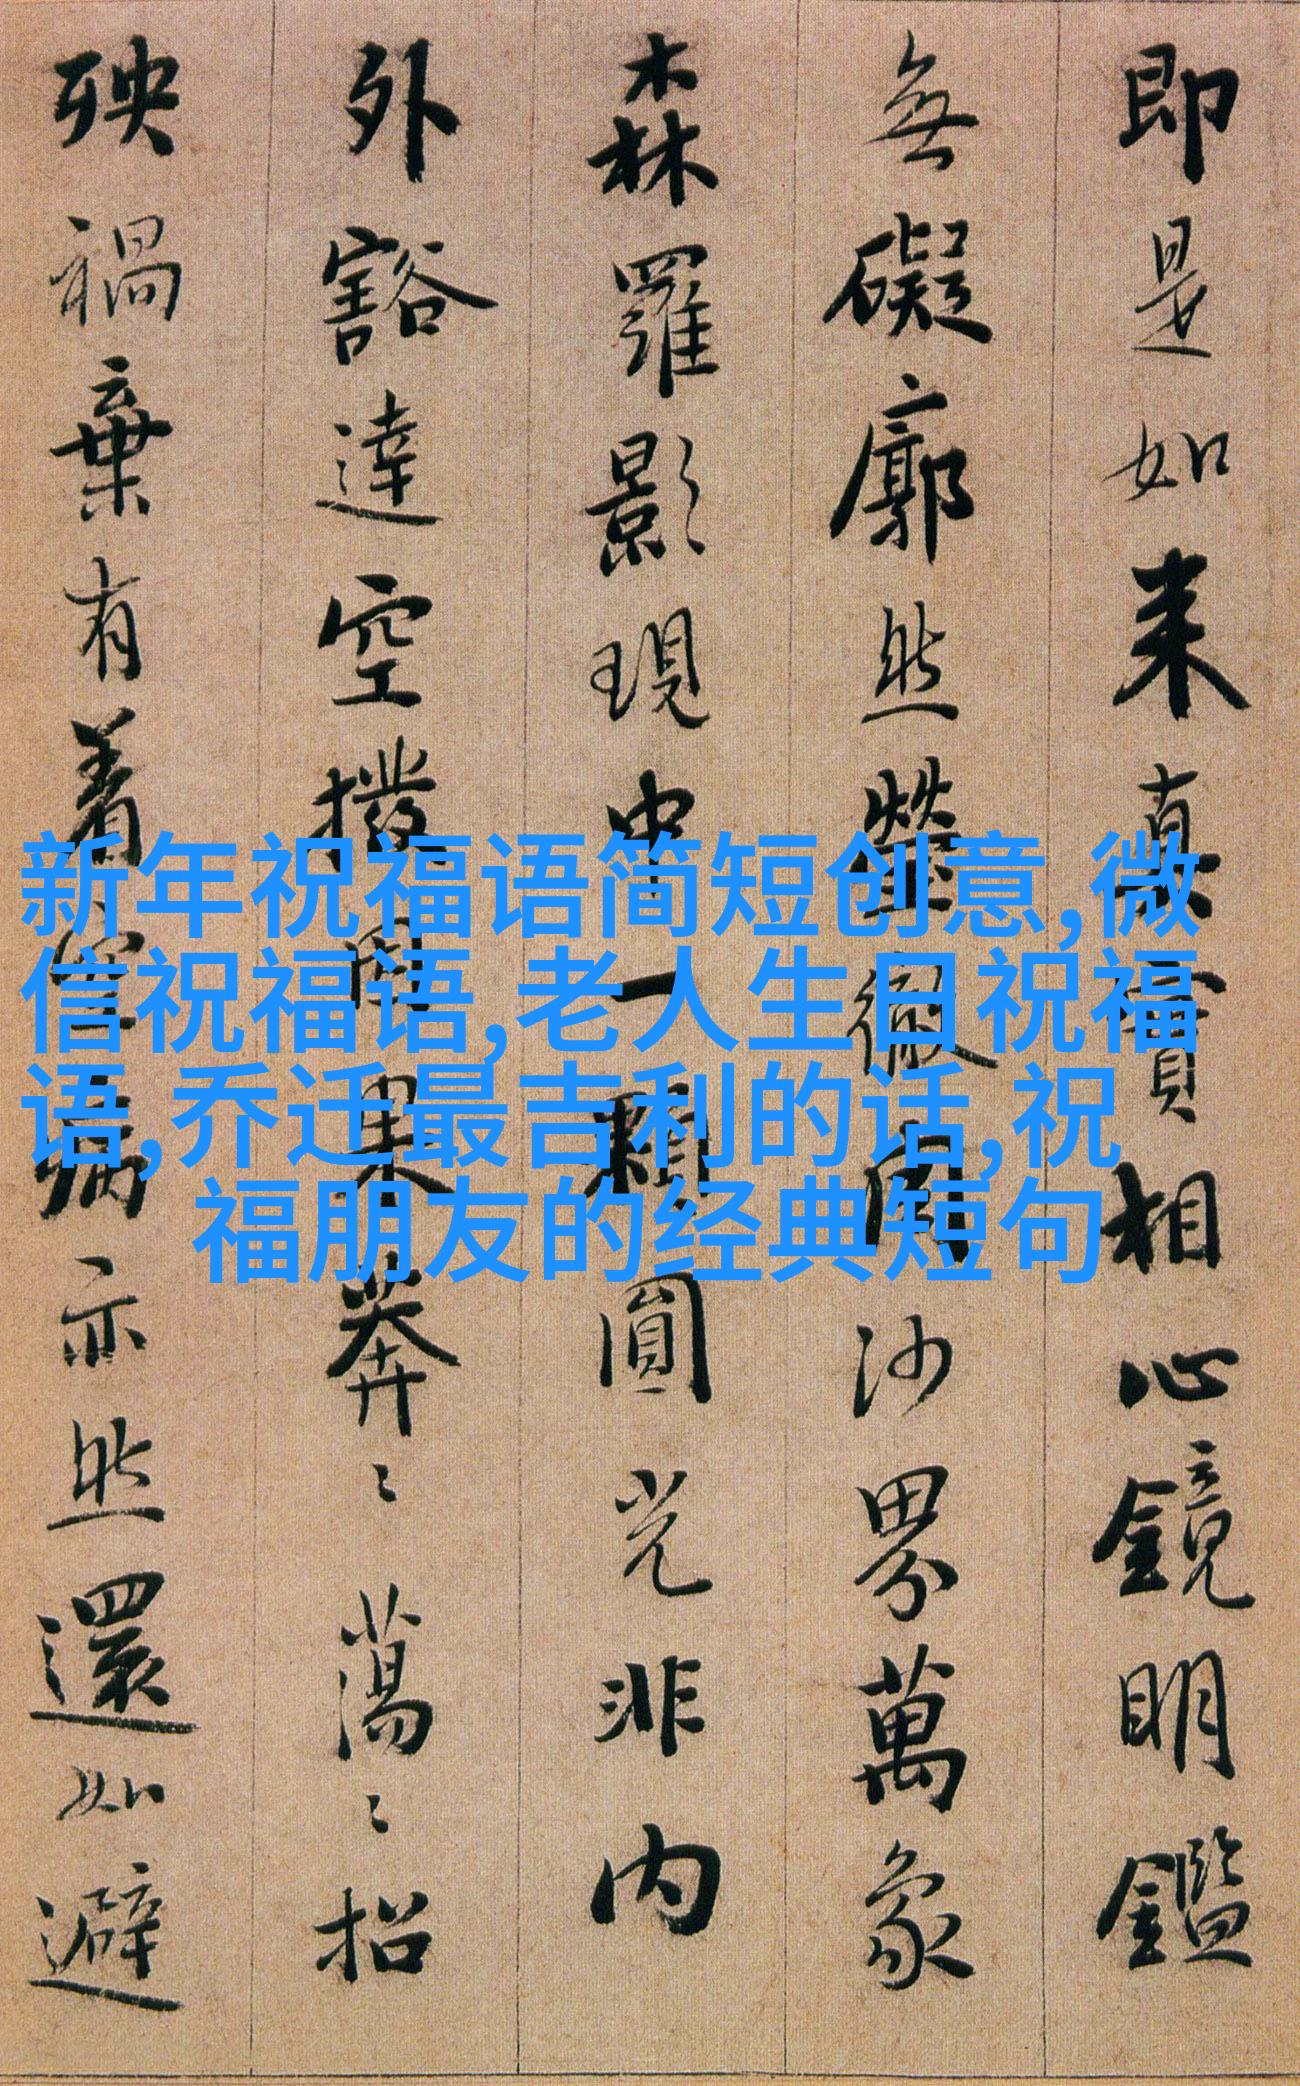 即是如来真實相心鏡明鑑
無礙廓然瑩徹周沙界萬象
森羅影現中一顆圓光非内
外豁達空撥因果莽〻蕩〻招
殃禍棄有着空病亦然還如避
新年祝福语简短创意,微
信祝福语,老人生日祝福
语,乔迁最吉利的话,祝
福朋友的经典短句